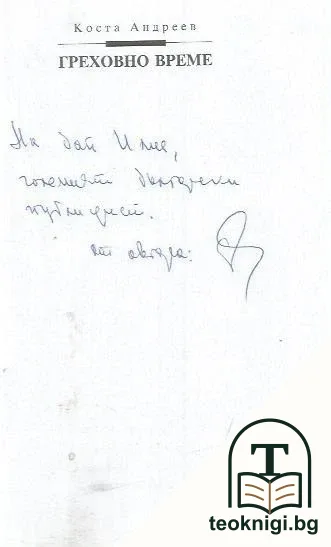 Коста Андреев
ГРЕХОВНО ВРЕМЕ
На бай Илия,
големият български
публицист.
от автора:
T
teoknigi.bg